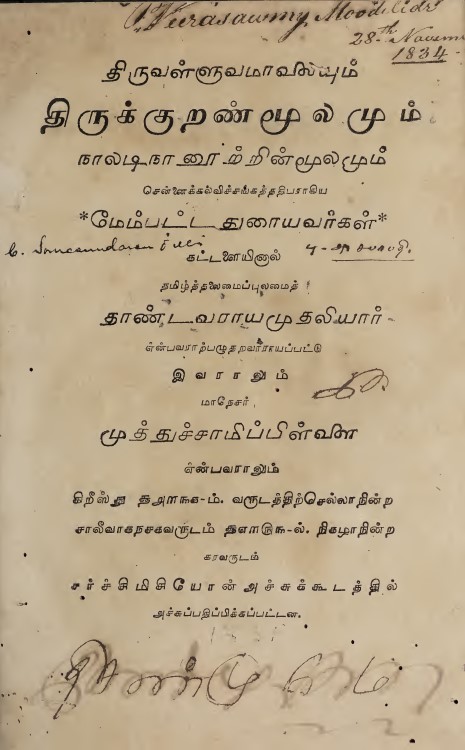 Veerasawmy Moodeliar
28th Novem
1834
திருவள்ளுவமாலையும்
திருக்குறண்மூலமும்
நாலடிநாநூற்றின்மூலமும்
சென்னைக்கல்விச்சங்கத்ததிபராகிய
*மேம்பட்டதுரையவர்கள்*
கட்டளையினால்
தமிழ்த்தலைமைப்புலமைத்
தாண்டவராயமுதலியார்
என்பவராற்பழுதறவாராயப்பட்டு
இவராலும்
மாநேசர்
முத்துச்சாமிப்பிள்ளை
என்பவராலும்
கிறீஸ்து ௲௮௱௩௰௧-ம். வருடத்திற்செல்லாநின்ற
சாலீவாகநசகவருடம் ௲௭௱௫௰௩-ல். நிகழாநின்ற
கரவருடம்
சர்ச்சிமிசியோன் அச்சுக்கூடத்தில்
அச்சுப்பதிப்பிக்கப்பட்டன.